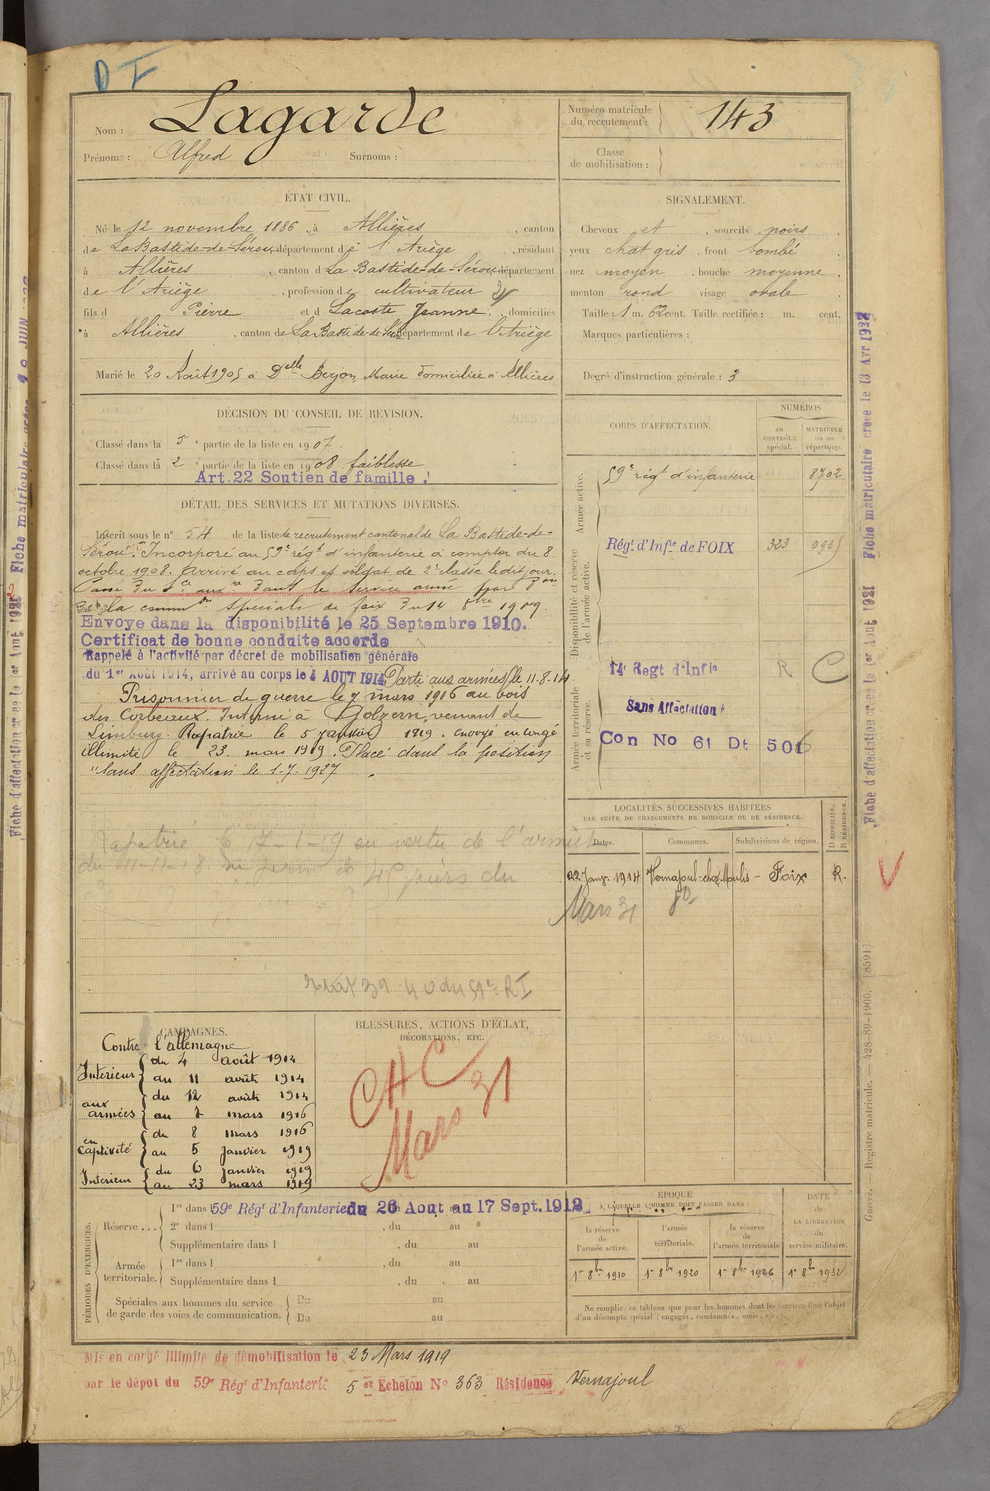 DI
Nom : Lagarde
Prénoms : Alfred Surnoms :
Numéro matricule du recrutement : 143
Classe de mobilisation :
ÉTAT CIVIL.
Né le 12 novembre 1886, à Allières, canton
de La Bastide-de-Sérou, département de l'Ariège, résidant
à Allières, canton de La Bastide-de-Sérou département
de l'Ariège, profession de cultivateur
fils de Pierre et de Lacoste Jeanne, domiciliés
à Allières, canton de La Bastide-de-Sérou département de l'Ariège
Marié le 20 Août 1905 à Delle Marie domiciliée à Allières
SIGNALEMENT.
Cheveux et, sourcils noirs,
yeux chat gris, front bombé
nez moyen, bouche moyenne,
menton rond visage ovale
Taille : 1 m. 62 cent. Taille rectifiée : m. cent.
Marques particulières :
Degré d'instruction générale : 3
DÉCISION DU CONSEIL DE REVISION.
Classé dans la 5e partie de la liste en 1907.
Classé dans la 2e partie de la liste en 1908 faiblesse
Art. 22 Soutien de famille.
DÉTAIL DES SERVICES ET MUTATIONS DIVERSES.
Inscrit sous le n° 54 de la liste de recrutement cantonal de La Bastide-de-
Sérou. Incorporé au 59e régt d'infanterie à compter du 8
octobre 1908. Arrivé au corps et soldat de 2e classe le dit jour.
la spéciale de foix du 14 8bre 1909.
Envoyé dans la disponibilité le 25 Septembre 1910.
Certificat de bonne conduite accordé
Rappelé à l'activité par décret de mobilisation générale
du 1er Août 1914, arrivé au corps le 4 AOUT 1914 Parti aux armées le 11-8-14
Prisonnier de guerre le 7 mars 1916 au bois
des Corbeaux. Interné à Golzern, venant de
Limburg Rapatrié le 5 janvier 1919. envoyé en congé
illimité le 23 mars 1919. Placé dans la position
"sans affectation le 1-7-1927
Rapatrié le 17-1-19 en vertu de l'armistice
du 11-11-18
jours du
CORPS D'AFFECTATION.
NUMÉROS
au CONTRÔLE spécial.
MATRICULE ou au répertoire.
Armée active.
59e régt d'infanterie 8702
Disponibilité et réserve de l'armée active.
Régt d'Infie de FOIX 323 0935
Armée territoriale et sa réserve.
14e Regt d'Infie R C
Sans Affectation
Con No 61 Dt 506
LOCALITÉS SUCCESSIVES HABITÉES
PAR SUITE DE CHANGEMENTS DE DOMICILE OU DE RÉSIDENCE.
Dates. Communes. Subdivisions de région. D DOMICILE. R RÉSIDENCE.
22 Janv. 1914 Foix R.
Mars 31
CAMPAGNES.
Contre l'allemagne
Intérieur du 4 août 1914
au 11 août 1914
aux armées du 12 août 1914
au 7 mars 1916
en Captivité du 8 mars 1916
au 5 janvier 1919
Intérieur du 6 janvier 1919
au 23 mars 1919
BLESSURES, ACTIONS D'ÉCLAT,
DÉCORATIONS, ETC.
CHC
Mars 31
PÉRIODES D'EXERCICES.
Réserve... 1re dans l 59e Régt d'Infanterie du 26 Aout au 17 Sept. 1912
2e dans l , du au
Supplémentaire dans l , du au
Armée territoriale. 1re dans l , du au
Supplémentaire dans l , du au
Spéciales aux hommes du service de garde des voies de communication. Du au
Du au
ÉPOQUE
À LAQUELLE L'HOMME DOIT PASSER DANS :
la réserve de l'armée active.
l'armée territoriale.
la réserve de l'armée territoriale
DATE de LA LIBÉRATION du service militaire.
1er 8bre 1910 1er 8bre 1920 1er 8bre 1926 1er 8bre 1932
Ne remplir ce tableau que pour les hommes dont les services font l'objet
d'un décompte spécial (engagés, condamnés, omis, etc.
Mis en congé illimité de démobilisation le 23 Mars 1919
par le dépôt du 59e Régt d'Infanterie 5 er Echelon N° 363 Résidence Vernajoul
Fiche d'affectation créée le 1er Aout 1921 Fiche matriculaire créée le 13 Avr 1932
Registre matricule. — 428-89-1900. [8591]
Fiche d'affectation créée le 1er Aout 1921 Fiche matriculaire créée